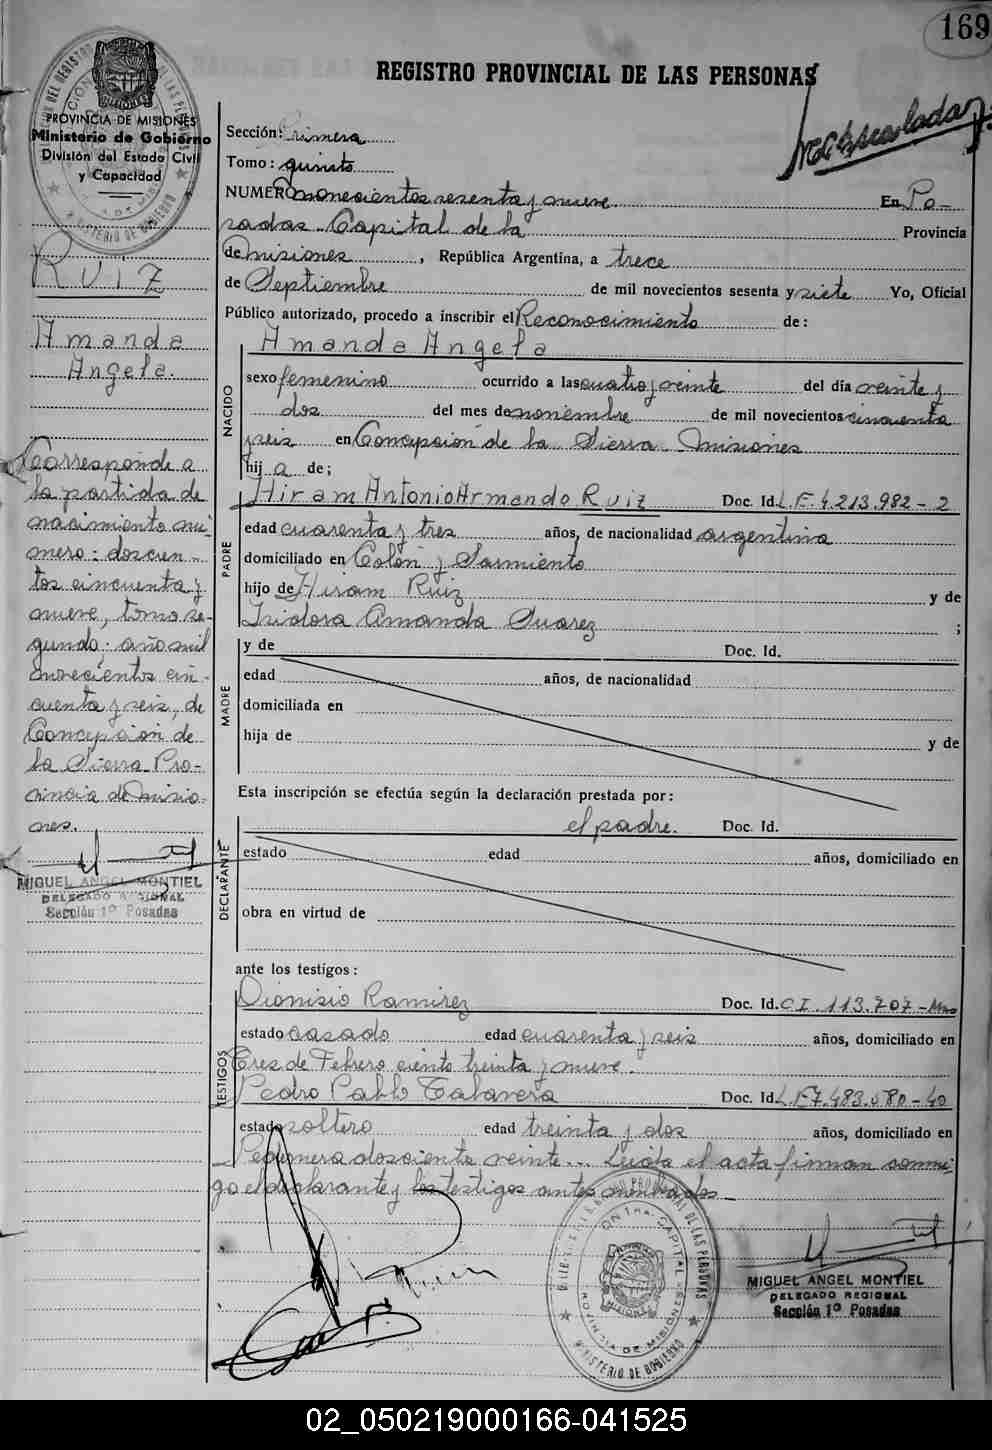 169
REGISTRO PROVINCIAL DE LAS PERSONAS
PROVINCIA DE MISIONES
Ministerio de Gobierno
División del Estado Civil
y Capacidad
Sección: Primera
Tomo: quinto
NUMERO novecientos sesenta y nueve En Po-
sadas Capital de la Provincia
de Misiones, República Argentina, a trece
de Septiembre de mil novecientos sesenta y siete Yo, Oficial
Público autorizado, procedo a inscribir el Reconocimiento de:
RUIZ
Amanda
Angela.
Corresponde a
la partida de
nacimiento nú-
mero: doscien-
tos cincuenta y
nueve, tomo se-
gundo; año mil
novecientos cin-
cuenta y seis, de
Concepción de
la Sierra Pro-
vincia de Misio-
nes.
MIGUEL ANGEL MONTIEL
DELEGADO REGIONAL
Sección 1º Posadas
NACIDO
Amanda Angela
sexo femenino ocurrido a las cuatro y veinte del día veinte y
dos del mes de noviembre de mil novecientos cincuenta
y seis en Concepción de la Sierra Misiones
hij a de;
PADRE
Hiram Antonio Armando Ruiz Doc. Id. L.E. 4.213.982-2
edad cuarenta y tres años, de nacionalidad argentina
domiciliado en Colón y Sarmiento
hijo de Hiram Ruiz y de
Isidora Amanda Suarez ;
MADRE
y de Doc. Id.
edad años, de nacionalidad
domiciliada en
hija de y de
Esta inscripción se efectúa según la declaración prestada por:
DECLARANTE
el padre. Doc. Id.
estado edad años, domiciliado en
obra en virtud de
ante los testigos:
TESTIGOS
Dionisio Ramirez Doc. Id. C.I. 113.707-Mnes
estado casado edad cuarenta y seis años, domiciliado en
Tres de Febrero ciento treinta y nueve.
Pedro Pablo Talavera Doc. Id. L.E 7.483.080-40
estado soltero edad treinta y dos años, domiciliado en
Pedernera doscientos veinte... Leída el acta firman conmi-
go el declarante y los testigos antes nombrados
MIGUEL ANGEL MONTIEL
DELEGADO REGIONAL
Sección 1º Posadas
PROVINCIA DE MISIONES
MINISTERIO DE GOBIERNO
02_050219000166-041525